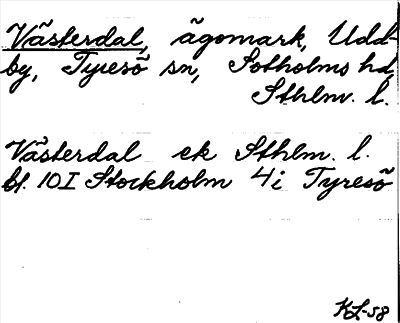 Västerdal, ägomark, Udd-
by, Tyresö sn, Sotholms hd,
Sthlm. l.
Västerdal ek Sthlm. l.
bl. 10I Stockholm 4i Tyresö
KL-58